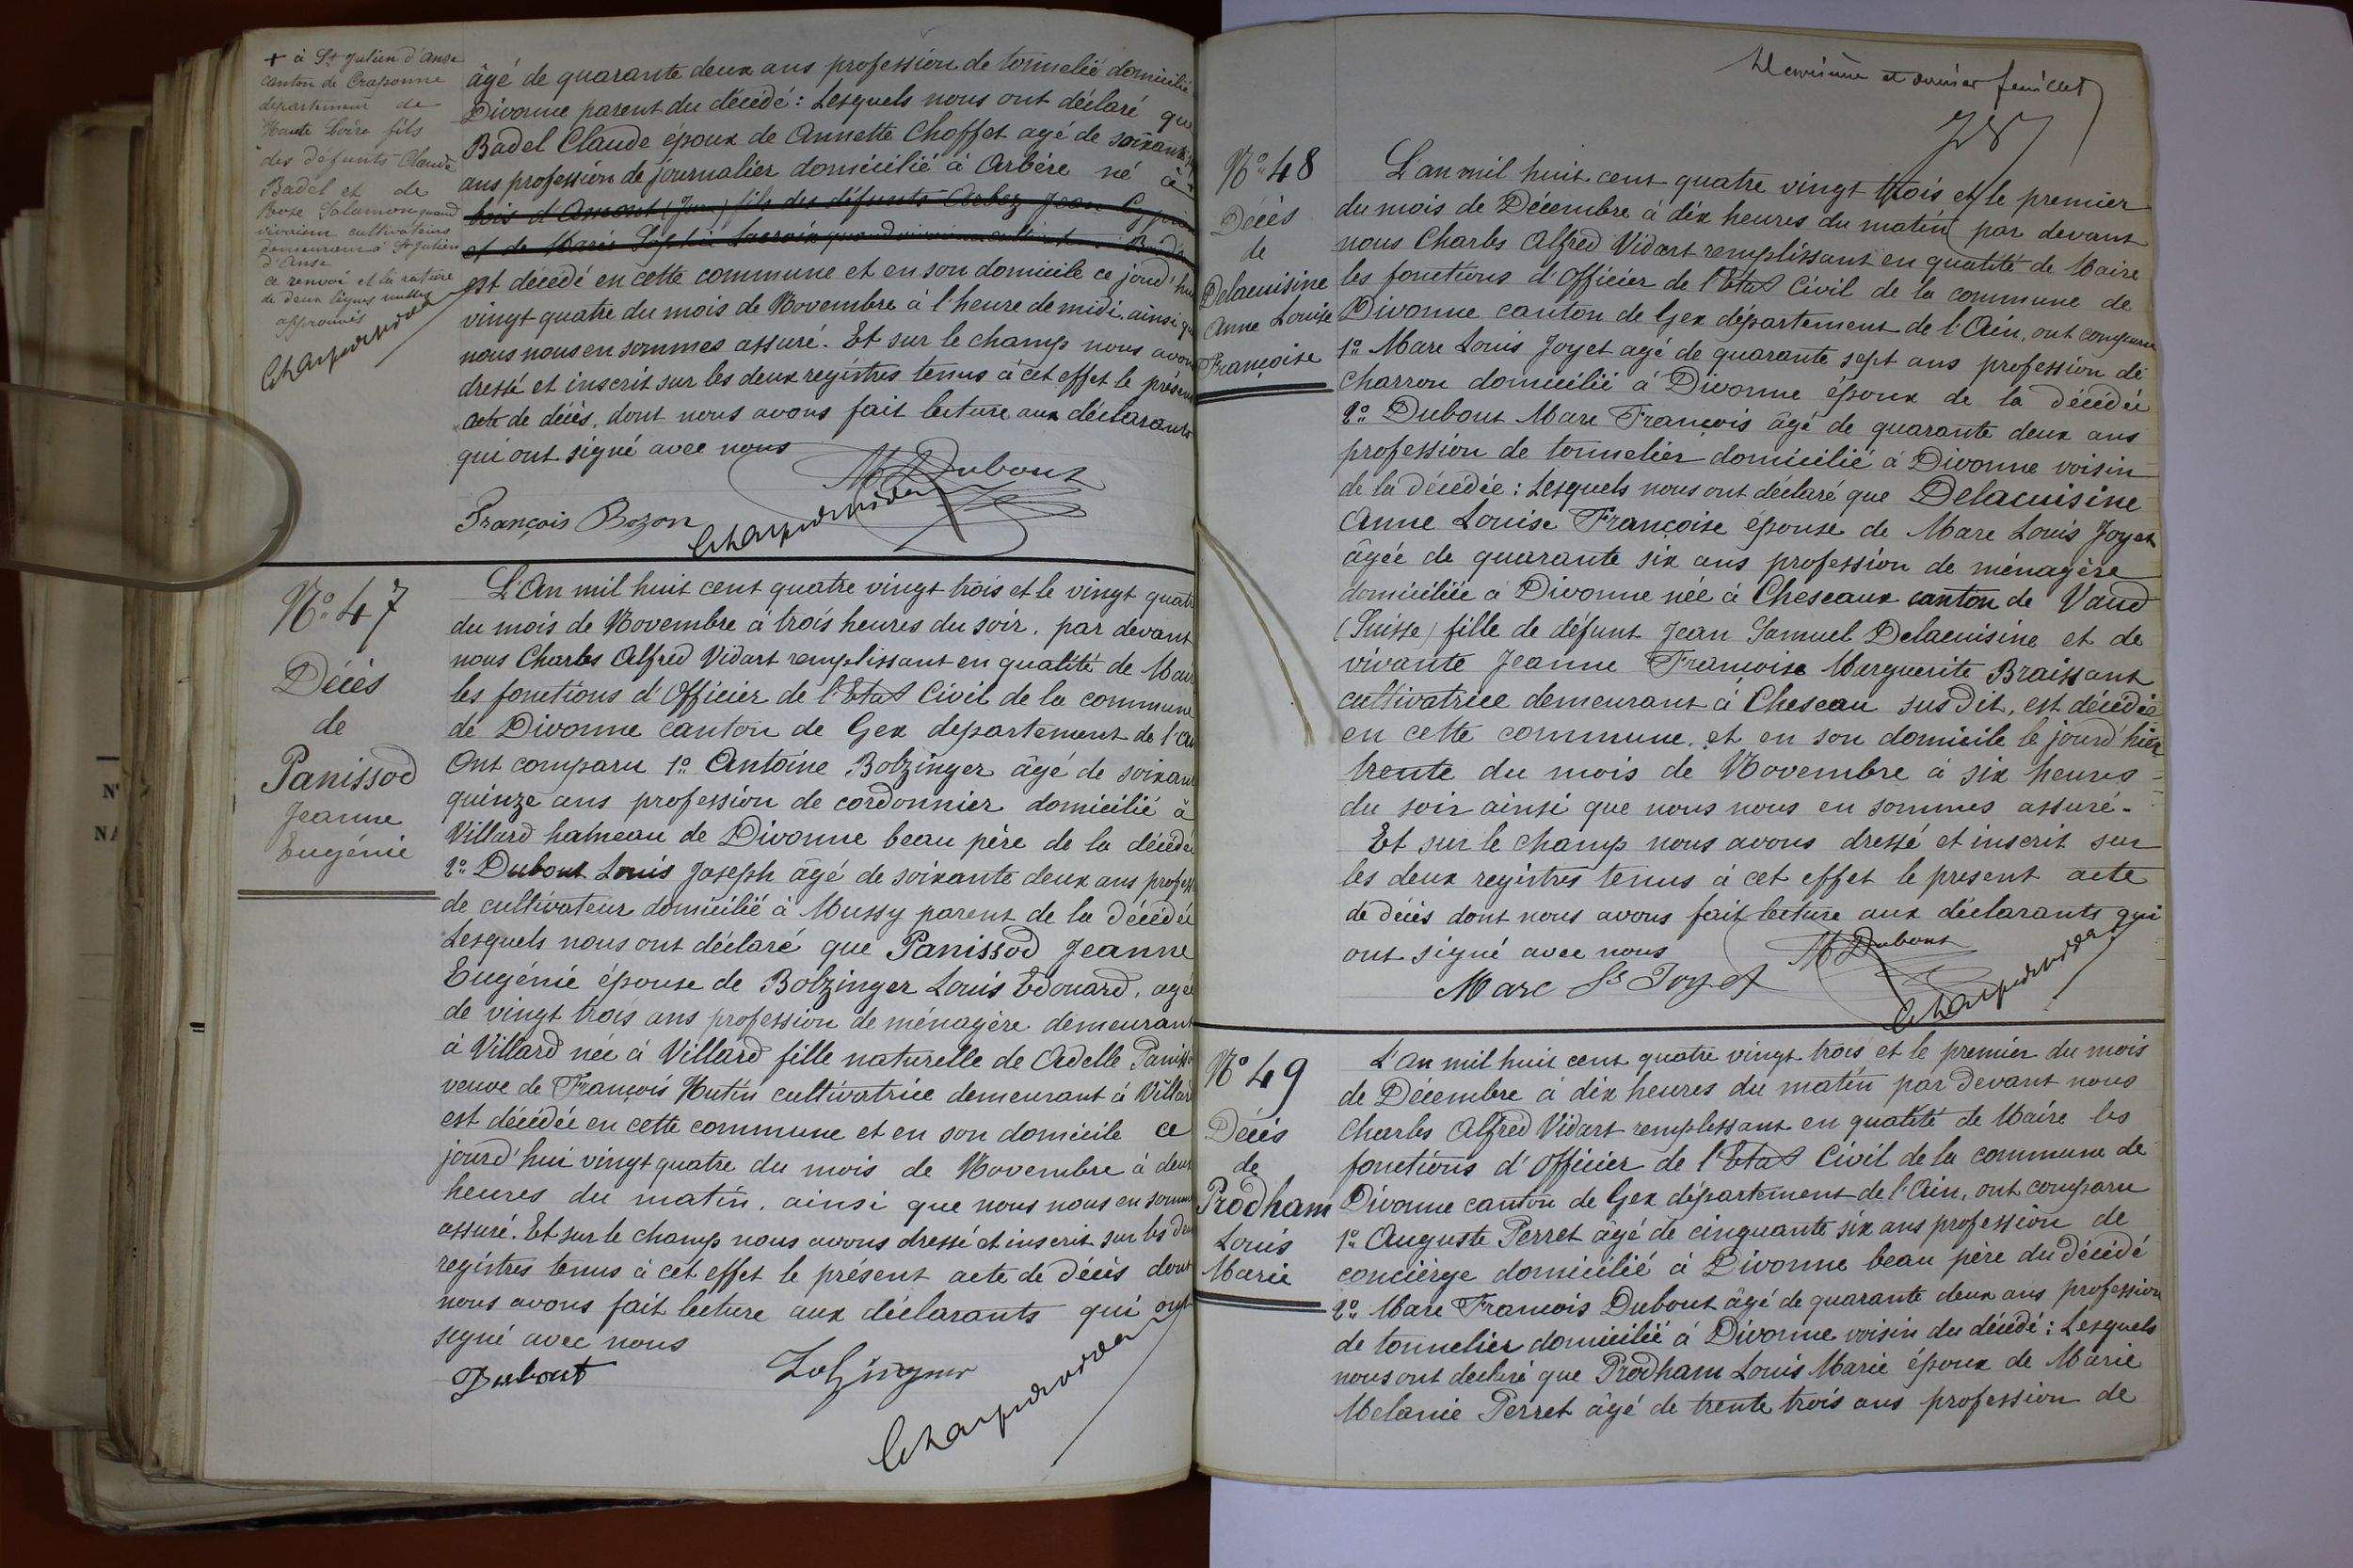 + à St Julien d'Anse
canton de Craponne
département de
Haute Loire fils
des défunts Claude
Badel et de
Rose Salamon quand
vivaient cultivateurs
demeurant à St Julien
d'Anse
ce renvoi et la rature
de deux lignes nulles
approuvés
âgé de quarante deux ans profession de tonnelié domicilié
Divonne parent du décédé : Lesquels nous ont déclaré que
Badel Claude époux de Annette Choffet agé de soixante
ans profession de journalier domicilié à Arbère né à +
bois d'Amont (Jura) fils des défunts Arbez Jean
et de Marie Josephte Lacroix quand vivaient
est décédé en cette commune et en son domicile ce jourd'hui
vingt quatre du mois de Novembre à l'heure de midi. ainsi que
nous nous en sommes assuré. Et sur le champ nous avons
dressé et inscrit sur les deux registres tenus à cet effet le présent
acte de décès, dont nous avons fait lecture aux déclarants
qui ont signé avec nous
M Dubout
François Bozon
N° 47
Décès
de
Panissod
Jeanne
Eugénie
L'An mil huit cent quatre vingt trois et le vingt quatre
du mois de Novembre à trois heures du soir. par devant
nous Charles Alfred Vidart remplissant en qualité de Maire
les fonctions d'Officier de l'Etat Civil de la commune
de Divonne canton de Gex departement de l'Ain
Ont comparu 1° Antoine Bolzinger âgé de soixante
quinze ans profession de cordonnier domicilié à
Villard hameau de Divonne beau père de la décédée
2° Dubout Louis Joseph âgé de soixante deux ans profess
de cultivateur domicilié à Mussy parent de la décédée
Lesquels nous ont déclaré que Panissod Jeanne
Eugénie épouse de Bolzinger Louis Edouard, agée
de vingt trois ans profession de ménagère demeurant
à Villard née à Villard fille naturelle de Adelle Panisso
veuve de François Hutin cultivatrice demeurant à Villard
est décédée en cette commune et en son domicile ce
jourd'hui vingt quatre du mois de Novembre à deux
heures du matin. ainsi que nous nous en sommes
assuré. Et sur le champ nous avons dressé et inscrit sur les deux
registres tenus à cet effet le présent acte de décès dont
nous avons fait lecture aux déclarants qui ont
signé avec nous
Dubout
et dernier feuillet
N° 48
Décès
de
Delacuisine
Anne Louise
Françoise
L'an mil huit cent quatre vingt trois et le premier
du mois de Décembre à dix heures du matin par devant
nous Charles Alfred Vidart remplissant en qualité de Maire
les fonctions d'Officier de l'Etat Civil de la commune de
Divonne canton de Gex département de l'Ain, ont comparu
1° Marc Louis Joyet agé de quarante sept ans profession de
charron domicilié à Divonne époux de la décédée
2° Dubout Marc François âgé de quarante deux ans
profession de tonnelier domicilié à Divonne voisin
de la décédée : Lesquels nous ont déclaré que Delacuisine
Anne Louise Françoise épouse de Marc Louis Joyet
âgée de quarante six ans profession de ménagère
domiciliée à Divonne née à Cheseaux canton de Vaud
(Suisse) fille de défunt Jean Samuel Delacuisine et de
vivante Jeanne Françoise Marguerite Braissant
cultivatrice demeurant à Cheseau susdit, est décédée
en cette commune. et en son domicile le jourd'hier
trente du mois de Novembre à six heures
du soir ainsi que nous nous en sommes assuré.
Et sur le champ nous avons dressé et inscrit sur
les deux registres tenus à cet effet le present acte
de décès dont nous avons fait lecture aux déclarants qui
ont signé avec nous
M Dubout
Marc Ls Joyet
N° 49
Décès
de
Prodham
Louis
Marie
L'an mil huit cent quatre vingt trois et le premier du mois
de Décembre à dix heures du matin par devant nous
Charles Alfred Vidart remplessant en qualité de Maire les
fonctions d'Officier de l'Etat Civil de la commune de
Divonne canton de Gex département de l'Ain, ont comparu
1° Auguste Perret âgé de cinquante six ans profession de
concièrge domicilié à Divonne beau père du décédé
2° Marc François Dubout âgé de quarante deux ans profession
de tonnelier domicilié à Divonne voisin du décédé : Lesquels
nous ont declaré que Prodham Louis Marie époux de Marie
Melanie Perret âgé de trente trois ans profession de